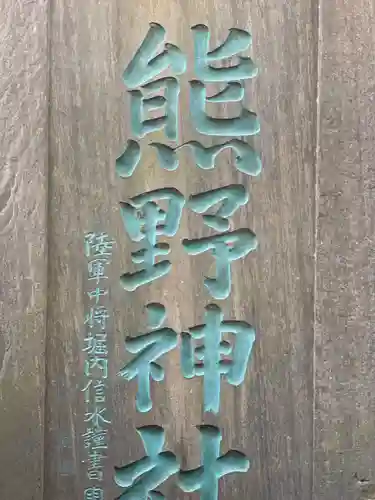 熊野神社
陸軍中将堀内信水謹書